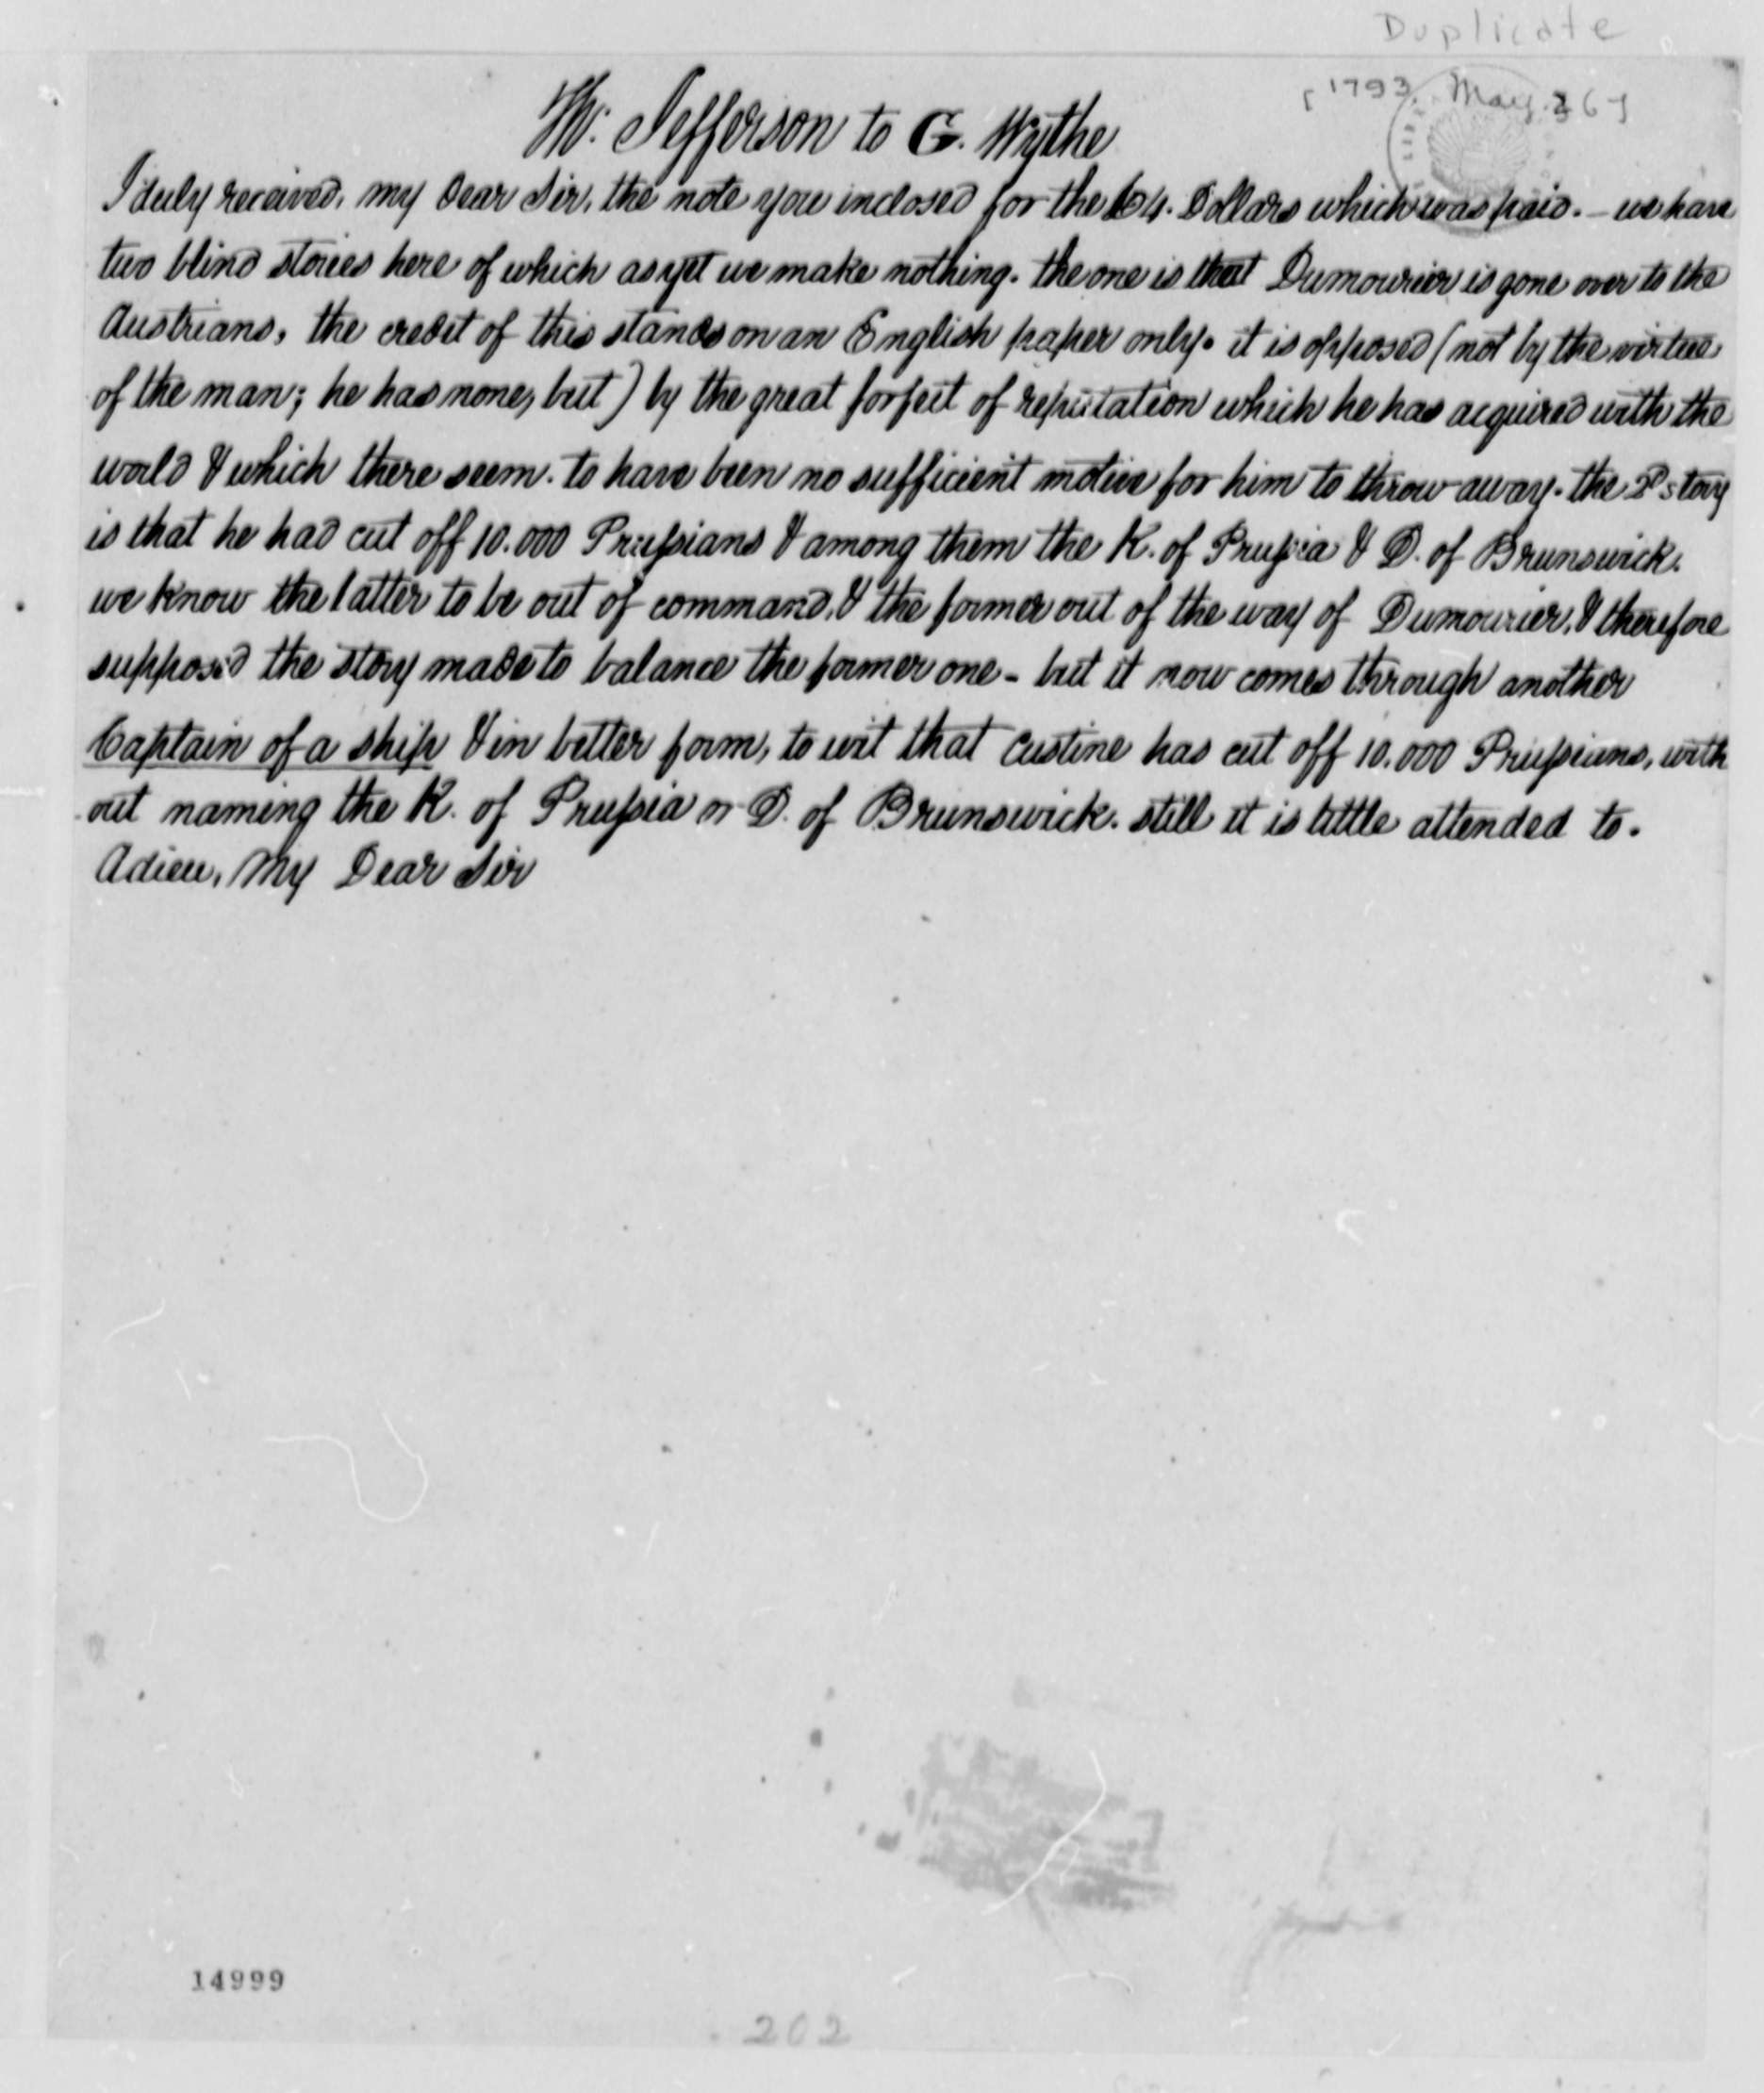 Duplicate
[1793. May. 26]
Th: Jefferson to G. Wythe
I duly received, my Dear Sir, the note you inclosed for the 64. Dollars which was paid. – we have
two blind stories here of which as yet we make nothing. the one is that Dumourier is gone over to the
Austrians, the credit of this stands on an English paper only. it is opposed (not by the virtue
of the man; he has none, but) by the great forfeit of reputation which he has acquired with the
world & which there seem. to have been no sufficient motive for him to throw away. the 2d story
is that he had cut off 10.000 Prussians & among them the K. of Prussia & D. of Brunswick.
we know the latter to be out of command, & the former out of the way of Dumourier, & therefore
supposed the story made to balance the former one - but it now comes through another
Captain of a ship & in better form, to wit that Custine has cut off 10.000 Prussians, with
out naming the K. of Prussia or D. of Brunswick. still it is little attended to.
Adieu, My Dear Sir
14999
202